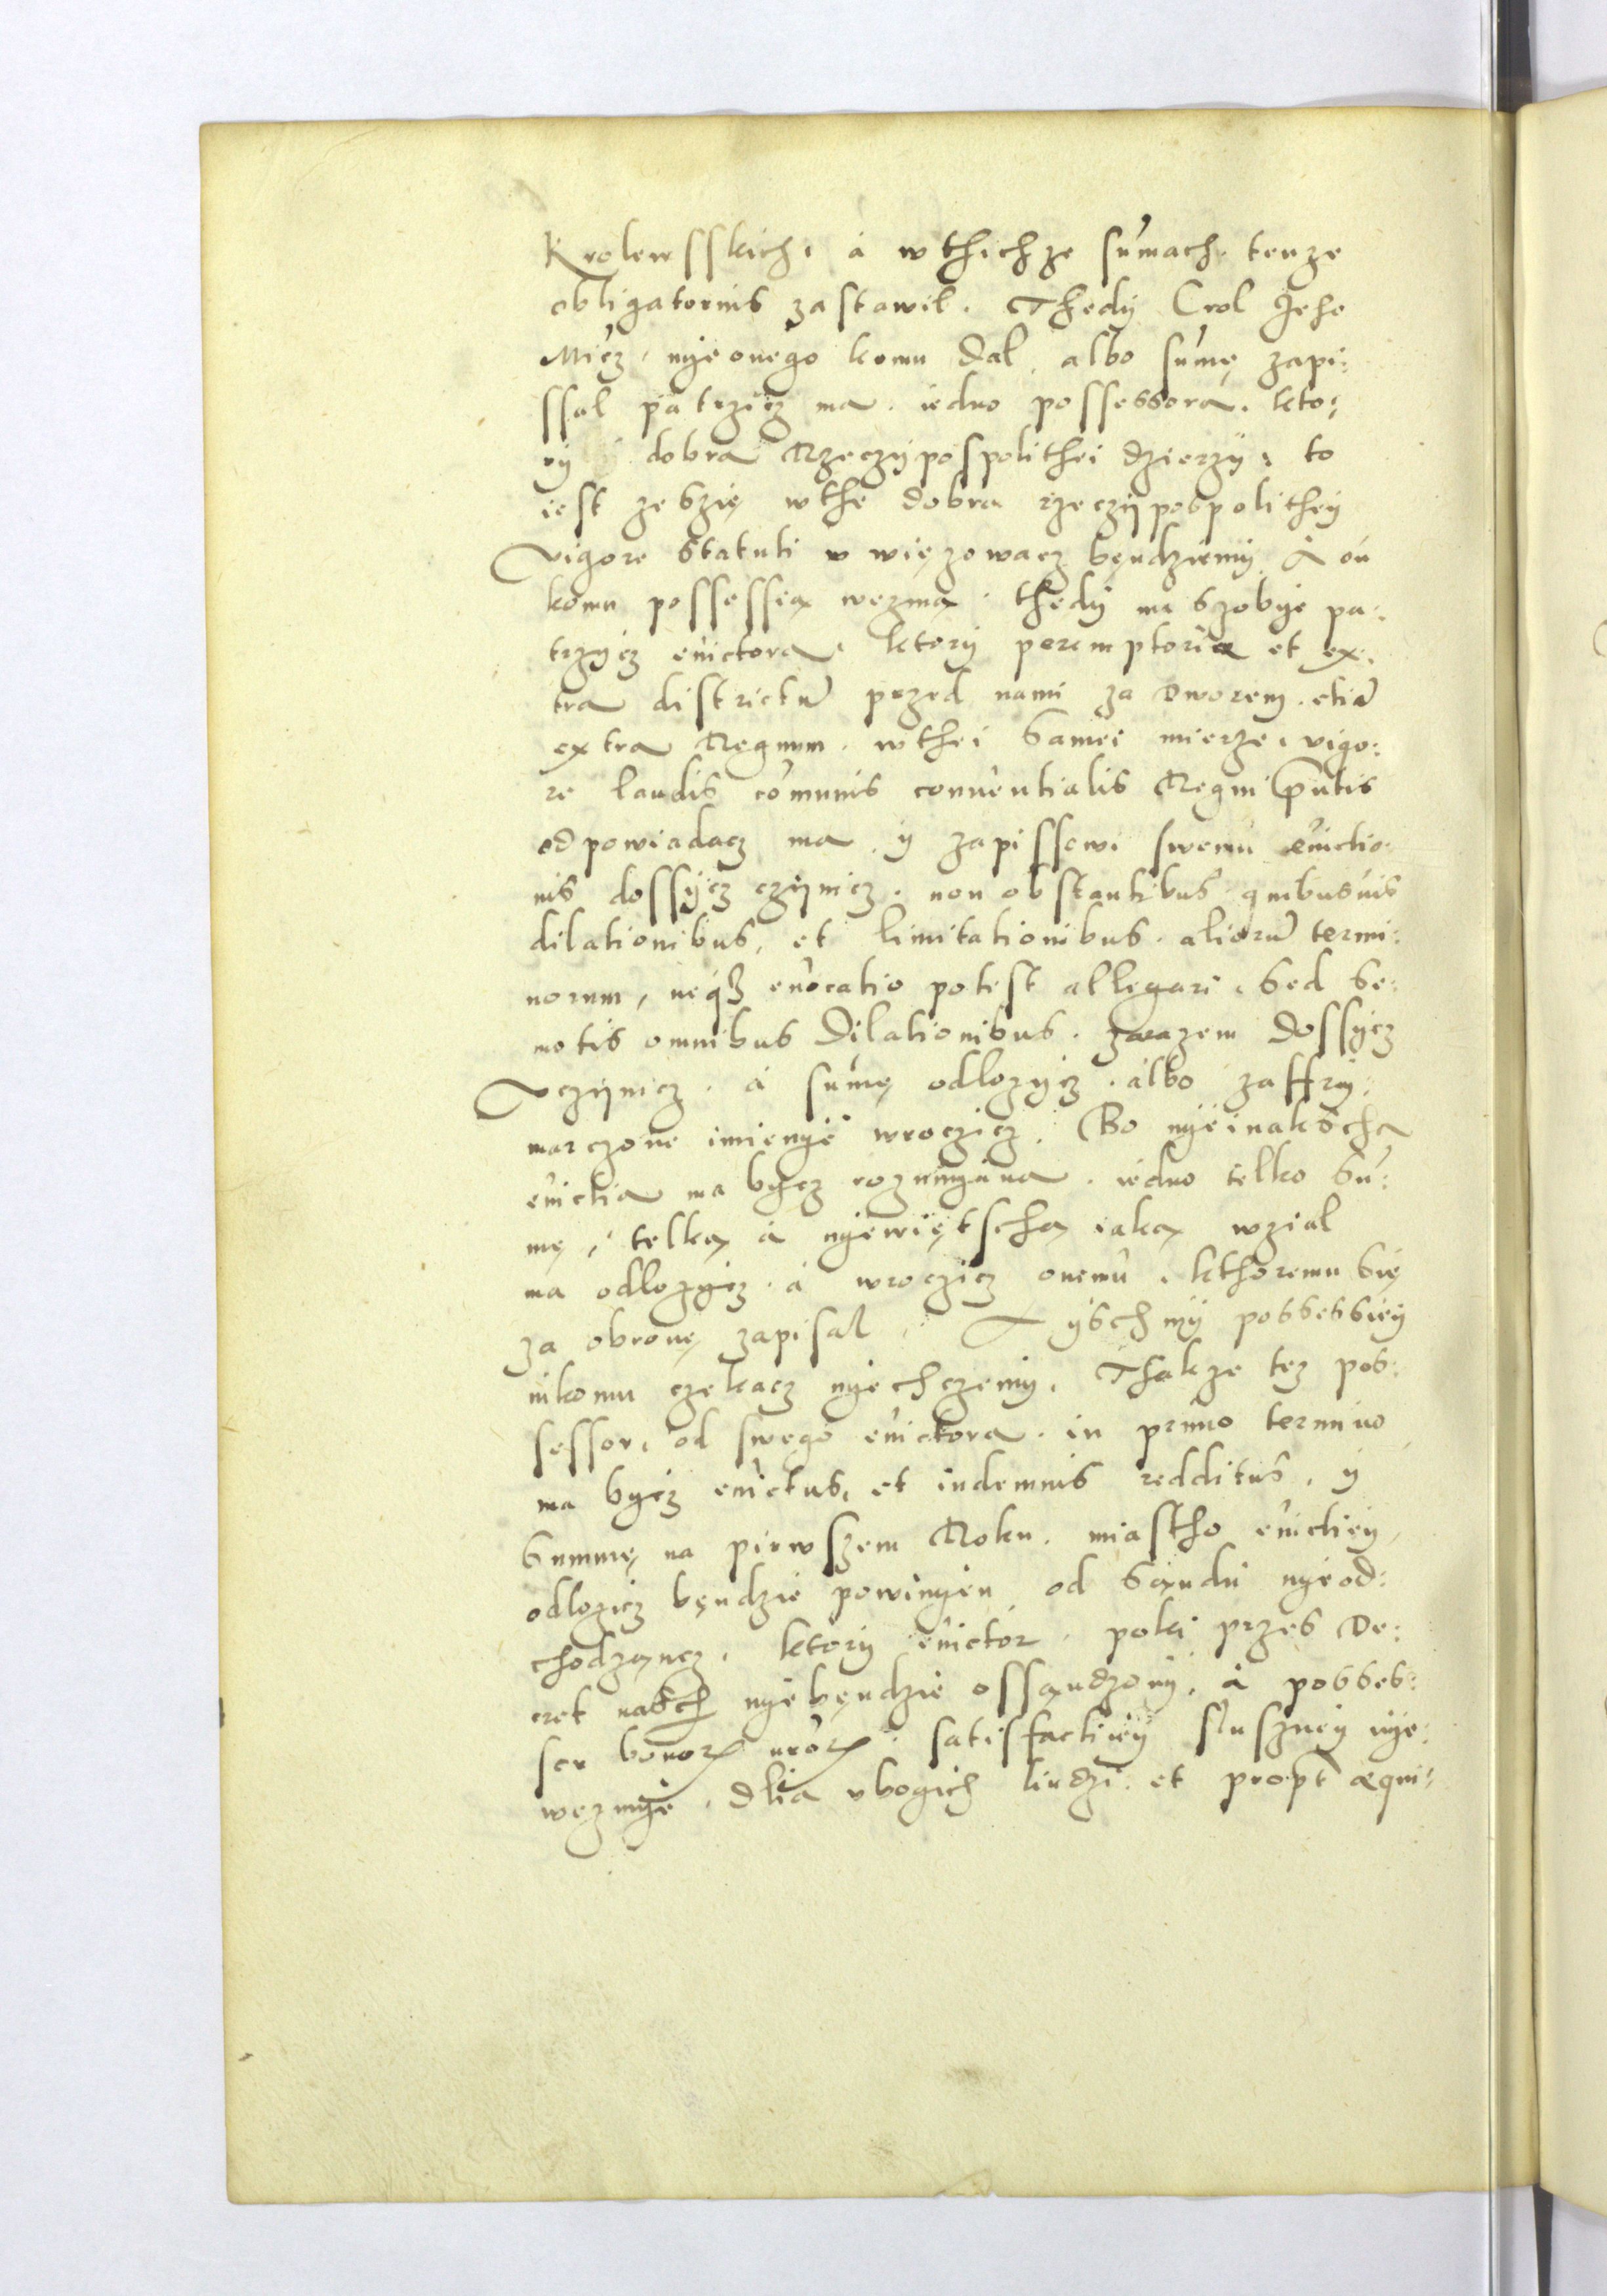 Krolewsskich, á w thichze sum̃ach tenze
obligatorius zastawil. Thedÿ Crol Jeho
Mićz, nÿe onego komu dal, albo sum̃ę zapi:
ssal patrzicz ma, iedno possessora, kto:
rÿ dobra Rzeczÿpospolithei dzierzÿ, to
iest ze szię w the dobra rzeczÿpospolithëÿ
vigore statuti w więzowacz bęndziemÿ. A on
komu possessią wezmą, thedÿ ma szobÿe pa:
trzÿcz euictora, ktorÿ peremptoriæ et ex:
tra districtũ przed nami za dworem, etiã
extra Regnum, w thei samëi mierze, vigo:
re laudis com̃unis conuentialis Regni pñtis
odpowiadacz ma, ÿ zapissowi swemu euictio:
nis dossÿcz czÿnicz, non obstantibus quibusuis
dilationibus, et limitationibus, aliorũ termi:
norum, neqз euocatio potest allegari, sed se:
motis omnibus dilationibus, zarazem dossÿcz
Vczÿnicz, á sum̃ę odlozÿcz, álbo zaffrÿ:
marczone imienÿe wroczicz. Bo nÿeinakscha
euictia ma bÿcz rozumÿana, iedno telko sum̃:
mę, telką á nÿewiętschą iaką wzial
ma odlozÿcz, á wroczicz onemu, kthoremu się
za obronę zapisal. Aÿschmÿ possessiëÿ
nikomu czekacz nÿechczemÿ. Thakze tez pos:
sessor, od swego euictora, in primo termino
ma bÿcz euictus, et indemnis redditus, ÿ
summę na pirwszem Roku, miastho euictiëÿ,
odlozicz bęndzie powinÿen od sąndu nÿeod:
chodząncz, ktorÿ euictor, poki przes De:
cret nasch nÿebęndzie ossąndzonÿ, á posses:
sor bonorꝝ nrorꝝ, satisfactiëÿ slusznëÿ nÿe:
wezmÿe, dlia vbogich liudzi, et propt̃ æqui: